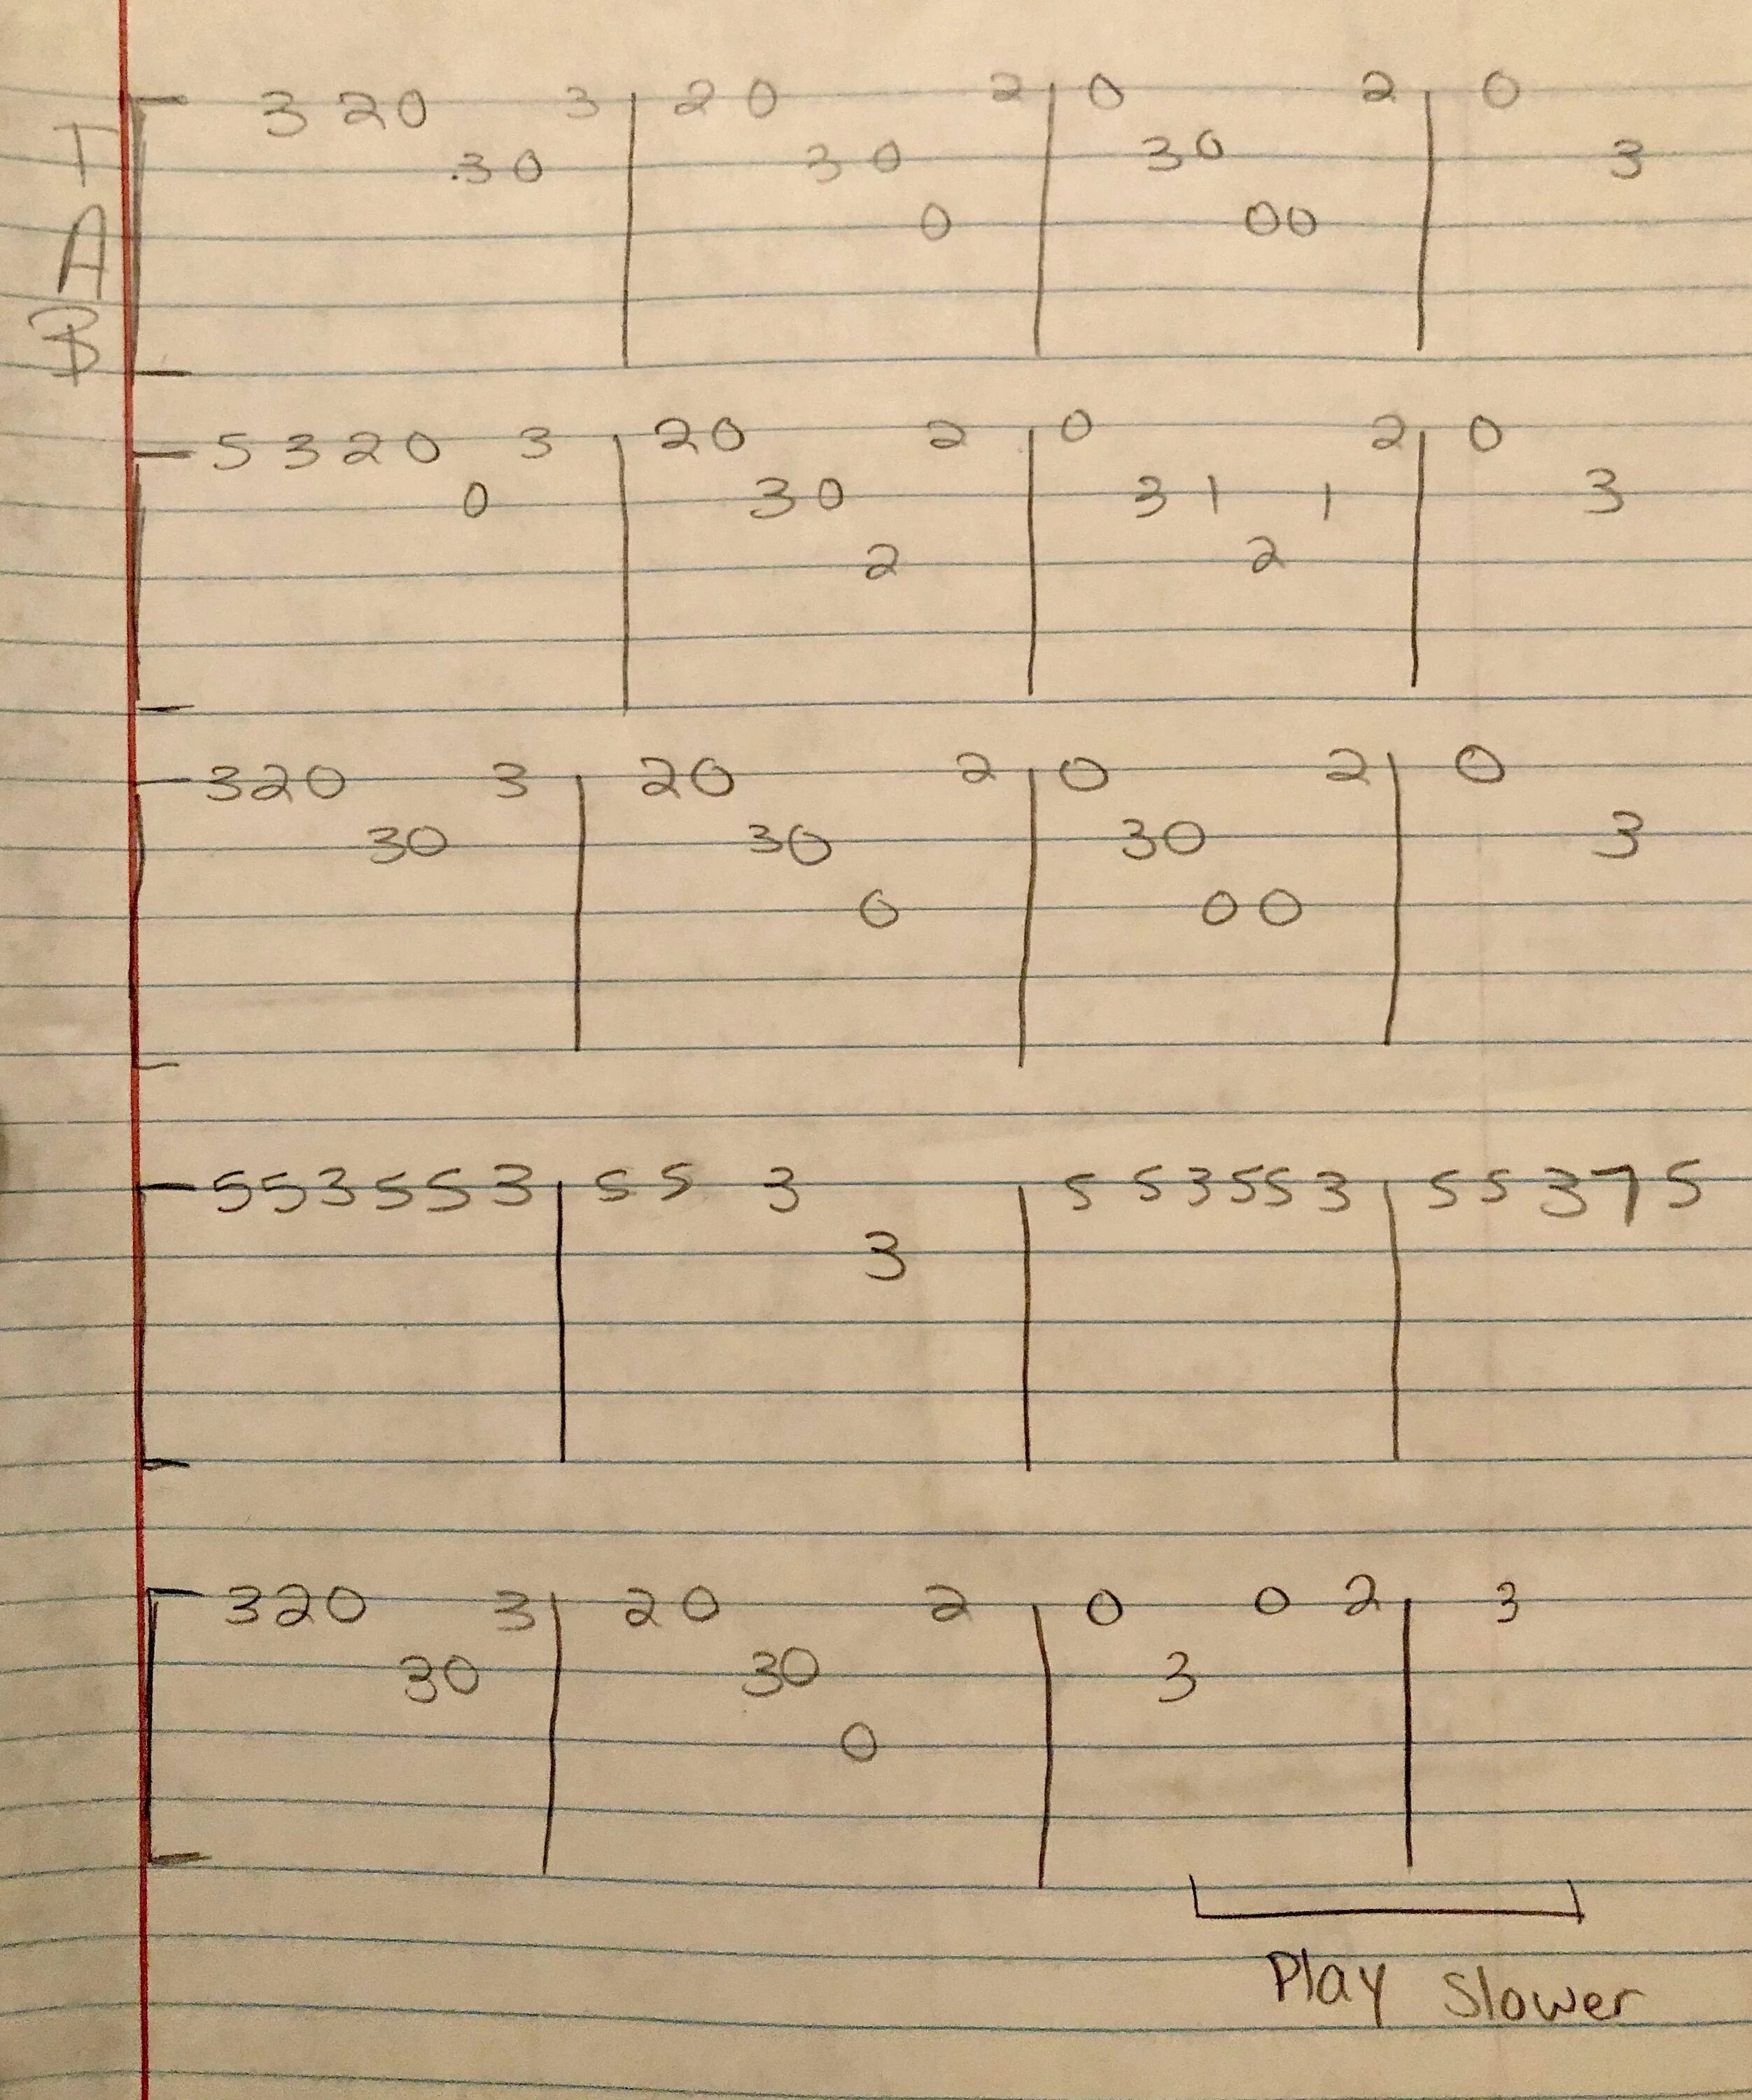 T
A
B
3 2 0 3 | 2 0 2 | 0 2 | 0
3 0 3 0 3 0 3
0 0 0
5 3 2 0 3 | 2 0 2 | 0 2 | 0
0 3 0 3 1 1 3
2 2
3 2 0 3 | 2 0 2 | 0 2 | 0
3 0 3 0 3 0 3
0 0 0
5 5 3 5 5 3 | 5 5 3 | 5 5 3 5 5 3 | 5 5 3 7 5
3
3 2 0 3 | 2 0 2 | 0 0 2 | 3
3 0 3 0 3
0
Play Slower